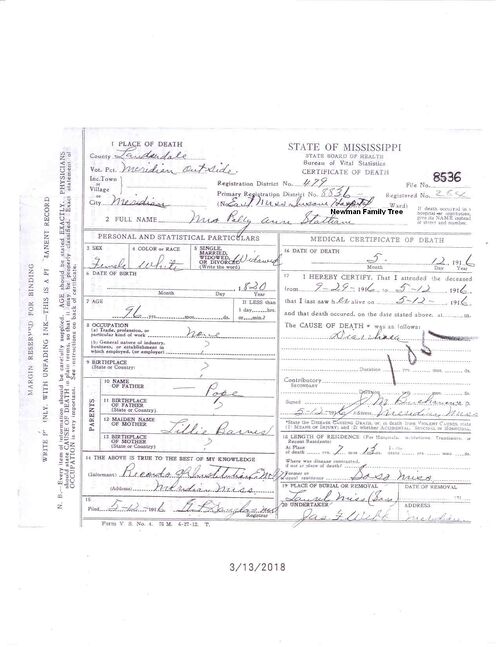 1 PLACE OF DEATH
County Lauderdale
Vot. Pct. Meridian outside
Inc. Town or
Village
City Meridian
STATE OF MISSISSIPPI
STATE BOARD OF HEALTH
Bureau of Vital Statistics
CERTIFICATE OF DEATH
Registration District No. 479
File No. 8536
Primary Registration District No. 8836
Registered No.
(No. East Miss Insane Hospital Ward)
Newman Family Tree
If death occurred in a hospital or institution, give its NAME instead of street and number.
2 FULL NAME Mrs Polly Ann
PERSONAL AND STATISTICAL PARTICULARS
3 SEX Female
4 COLOR or RACE White
5 SINGLE, MARRIED, WIDOWED, OR DIVORCED (Write the word) Widowed
1820
Month Day Year
7 AGE 96 yrs. mos. ds.
If LESS than 1 day hrs. or min.?
8 OCCUPATION
(a) Trade, profession, or particular kind of work None
(b) General nature of industry, business, or establishment in which employed, (or employer) ?
9 BIRTHPLACE
(State or County) ?
PARENTS
10 NAME OF FATHER — Pope
11 BIRTHPLACE OF FATHER (State or Country) ?
12 MAIDEN NAME OF MOTHER Lillie Barnes
13 BIRTHPLACE OF MOTHER (State or Country) ?
14 THE ABOVE IS TRUE TO THE BEST OF MY KNOWLEDGE
(Informant) Records of Institution
(Address) Meridian Miss
15
Filed 5-12-1916
Registrar
Form V. S. No. 4.
MEDICAL CERTIFICATE OF DEATH
16 DATE OF DEATH
5- 12, 1916
Month Day Year
17 I HEREBY CERTIFY, That I attended the deceased
from 9-29-1916 to 5-12-1916
that I last saw her alive on 5-12-1916
and that death occurred, on the date stated above, at m.
The CAUSE OF DEATH was as follows:
105
Duration yrs. mos. ds.
Contributory
Secondary
Duration yrs. mos. ds.
Signed J M Buchanan
5-12-1916 Meridian Miss
18 LENGTH OF RESIDENCE (For Hospitals, Institutions, Transients, or Recent Residents)
At place of death yrs. 7 mos. 13 ds.
Where was disease contracted, if not at place of death?
Former or usual residence Soso Miss
19 PLACE OF BURIAL OR REMOVAL
DATE OF REMOVAL
Laurel Miss (Soso)
20 UNDERTAKER
ADDRESS
Jas F Webb Meridian
MARGIN RESERVED FOR BINDING
N. B.—Every item of information should be carefully supplied. AGE should be stated EXACTLY. PHYSICIANS should state CAUSE OF DEATH in plain terms, so that it may be properly classified. Exact statement of OCCUPATION is very important. See instructions on back of certificate.
3/13/2018